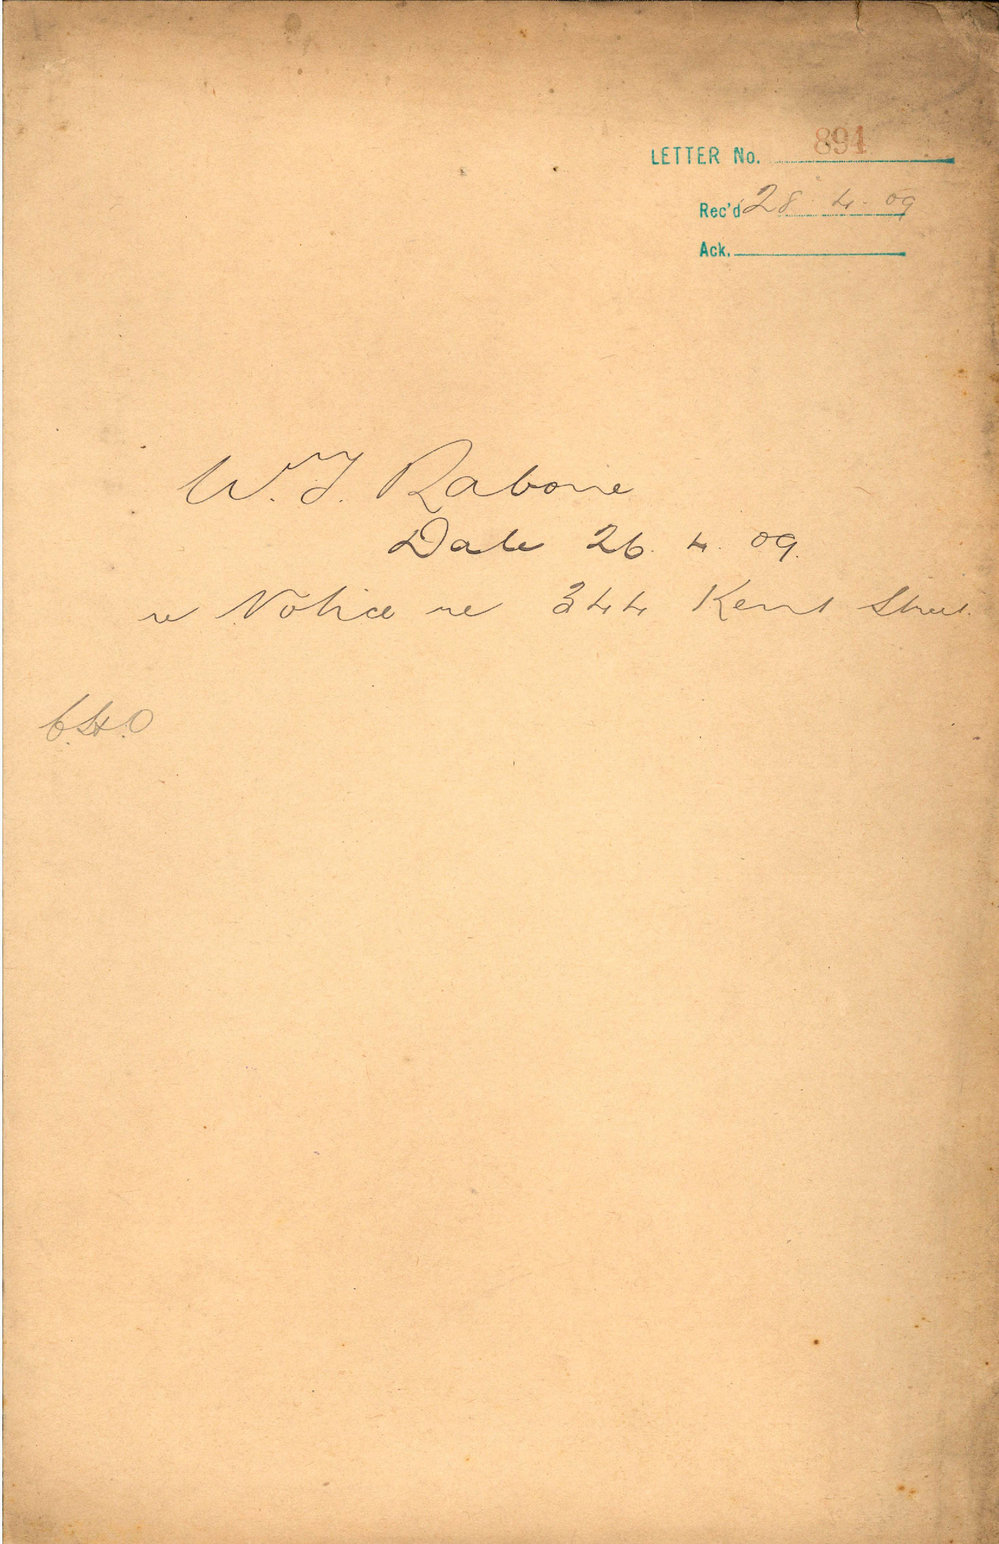 LETTER No. 891
Rec'd 28 . 4 . 09
Ack.
W. J. Rabone
Date 26. 4. 09.
re Notice re 344 Kent Street.
C.H.O